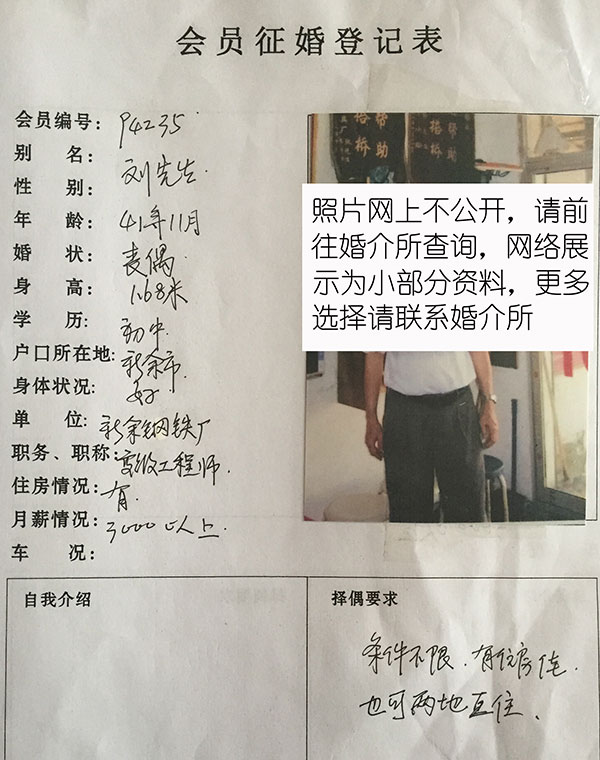 会员征婚登记表
会员编号: P4235
别 名: 刘先生.
性 别:
年 龄: 41年11月
婚 状: 丧偶.
身 高: 1.68米
学 历: 初中.
户口所在地: 新余市.
身体状况: 好
单 位: 新余钢铁厂
职务、职称: 高级工程师.
住房情况: 有.
月薪情况: 3000以上.
车 况:
帮助
照片网上不公开，请前
往婚介所查询，网络展
示为小部分资料，更多
选择请联系婚介所
自我介绍
择偶要求
条件不限.有住房佳.
也可两地互住.